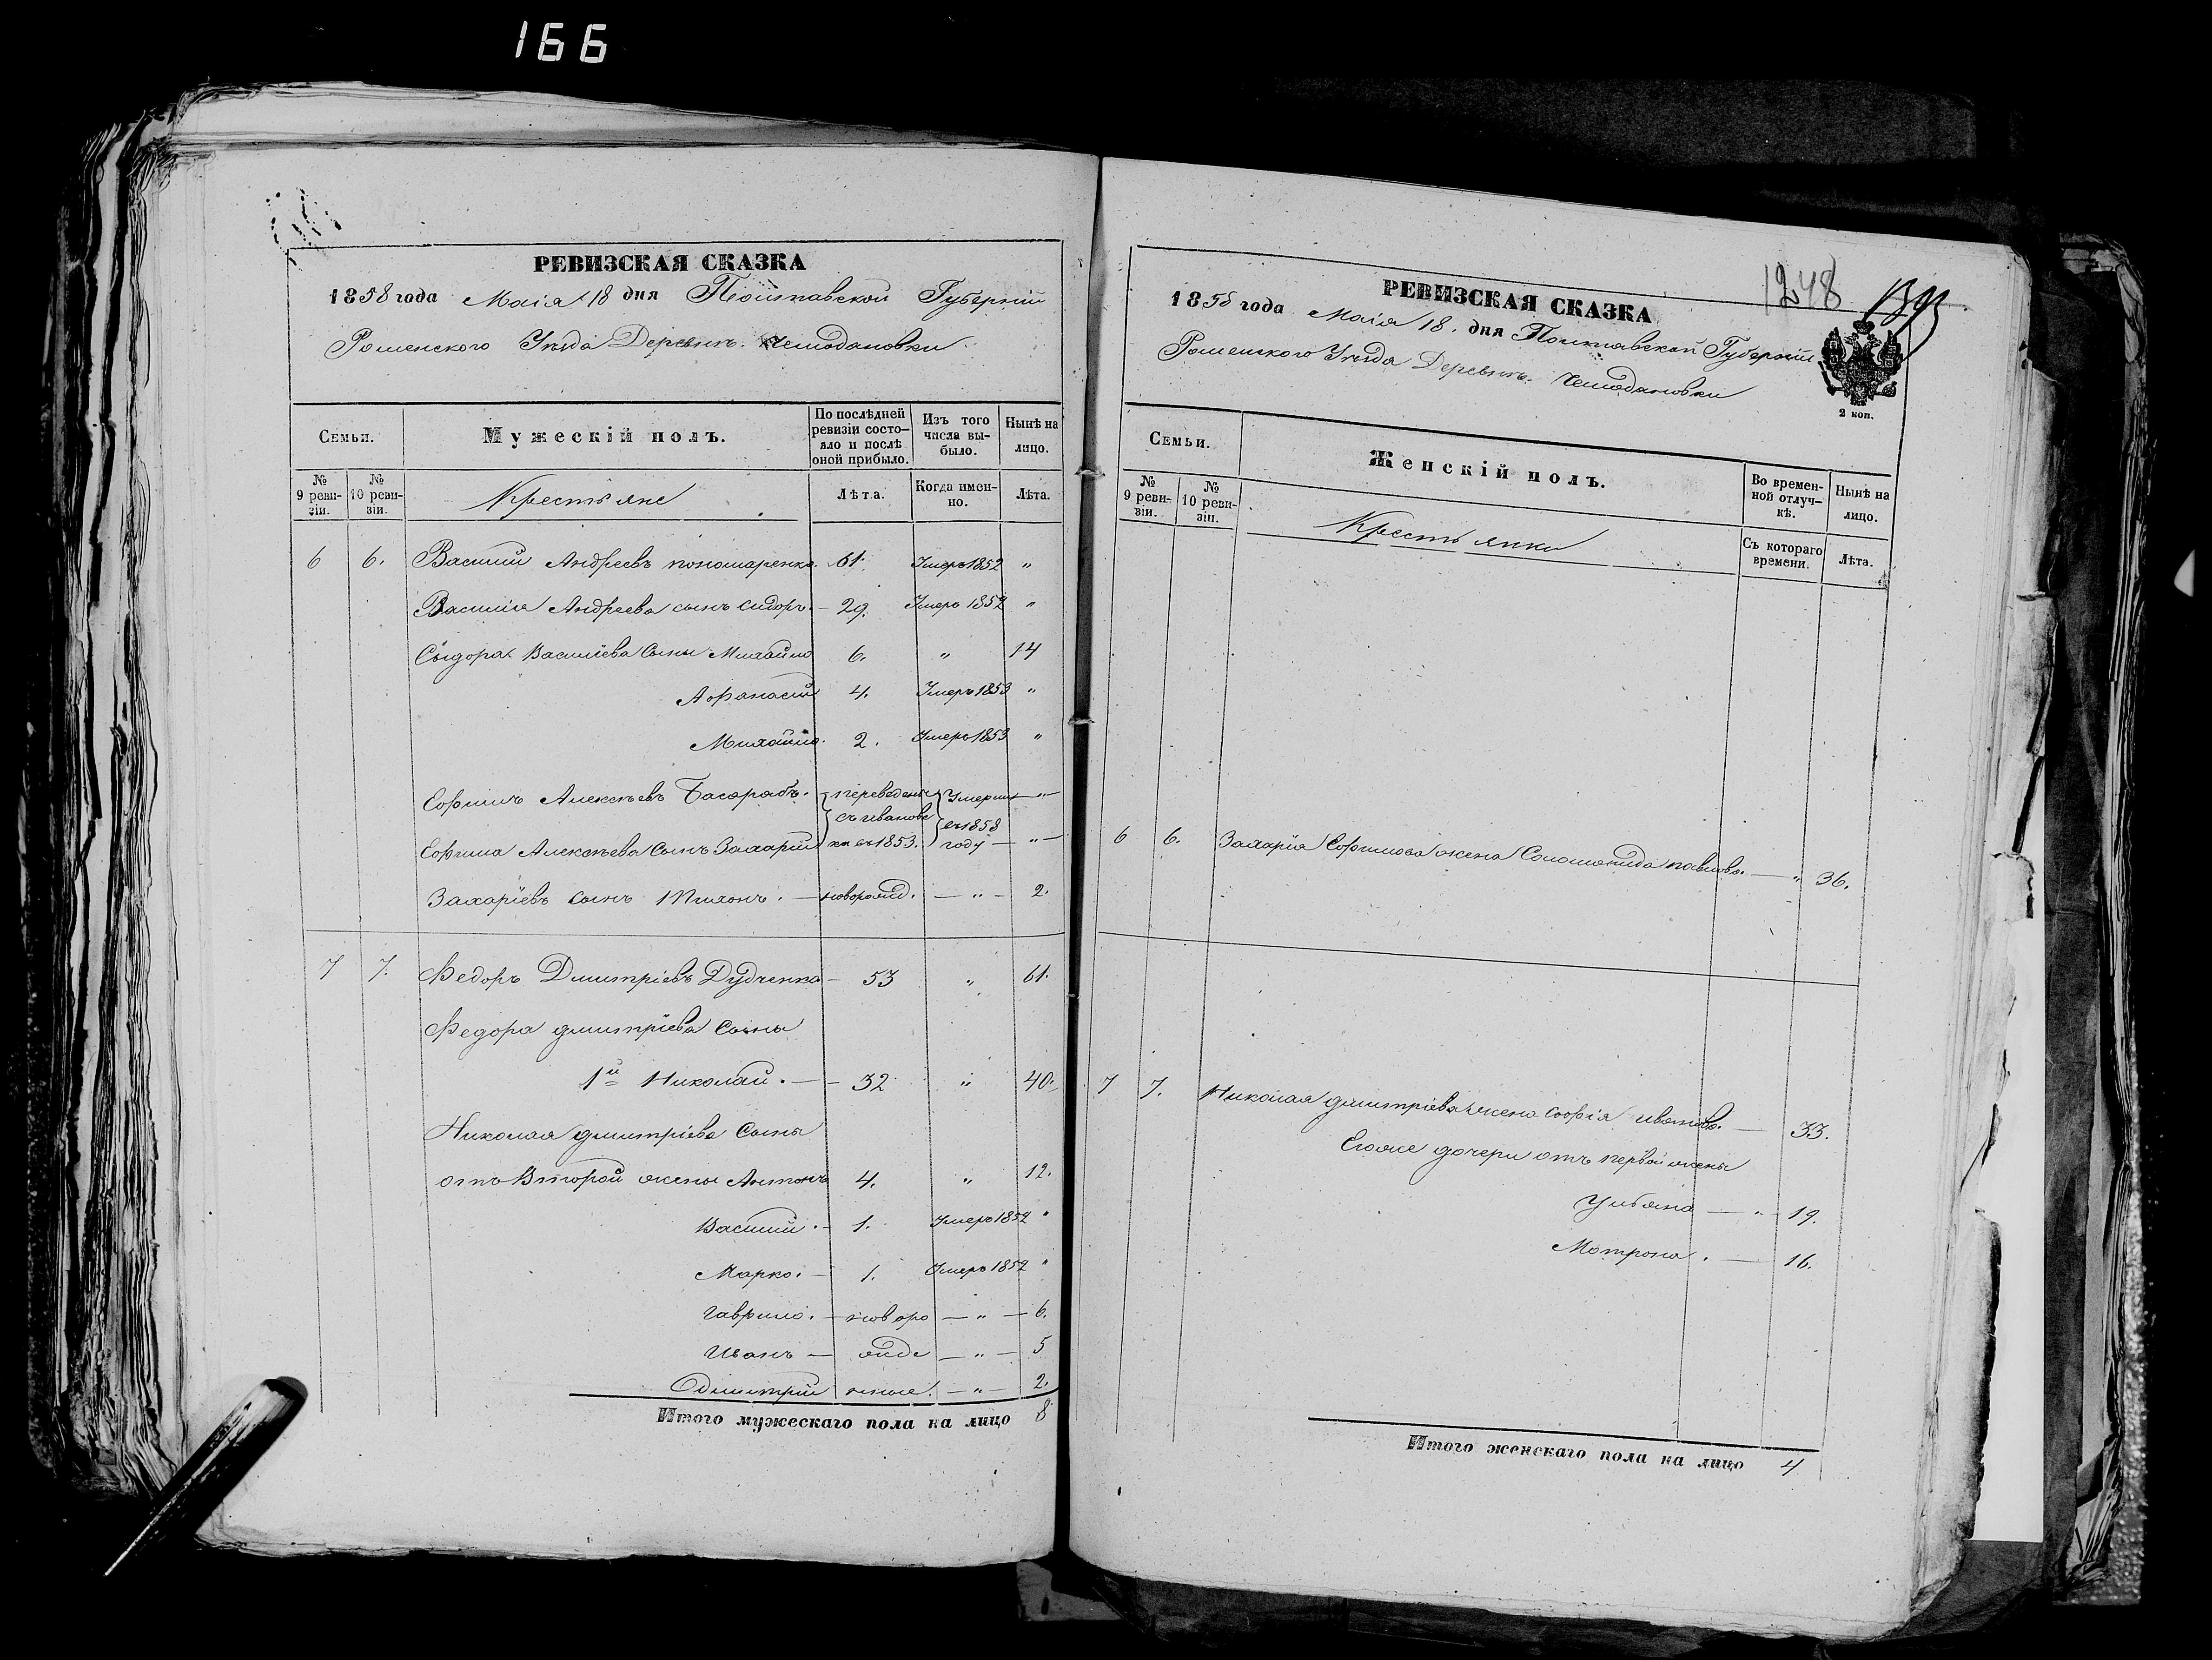 166
РЕВИЗСКАЯ СКАЗКА
1858 года Маія 18 дня Полтавской Губерніи
Роменского Уѣзда Деревни Чемодановки
Семьи. Мужескій полъ. По послѣдней ревизіи состояло и послѣ оной прибыло. Изъ того числа выбыло. Нынѣ на лицо.
№ 9 ревизіи. № 10 ревизіи. Крестьяне Лѣта. Когда именно. Лѣта.
6 6. Василий Андреевъ пономаренко 61. Умеръ 1852 "
Василія Андреева сынъ Сидоръ. — 29. Умеръ 1852 "
Сыдора Василіева Сыны Михайло 6. " 14
Афанасій 4. Умеръ 1853 "
Михайло. 2. Умеръ 1853 "
Ефимъ Алексѣевъ Басарабъ. переведены Умерли — "
съ Ивановки въ 1853. въ 1858 году
Ефима Алексѣева Сынъ Захарій — " —
Захаріевъ сынъ Тихонъ. — новорожд. — " — 2.
7 7. Федоръ Дмитріевъ Дудченко — 53 " 61.
Федора дмитріева Сыны
1й Николай. — 32 " 40.
Николая дмитріева Сыны
отъ Второй жены Антонъ 4. " 12.
Василий. — 1. Умеръ 1852 "
Марко. — 1. Умеръ 1852 "
Гаврило. — новоро — " — 6.
Иванъ — жде — " — 5
Дмитрій нные. — " — 2.
Итого мужескаго пола на лицо 8
1248
РЕВИЗСКАЯ СКАЗКА
1858 года Маія 18. дня Полтавской Губерніи
Роменского Уѣзда Деревни Чемодановки
2 коп.
Семьи. Женскій полъ. Во временной отлучкѣ. Нынѣ на лицо.
№ 9 ревизіи. № 10 ревизіи. Крестьянки Съ котораго времени. Лѣта.
6 6. Захарія Ефимова жена Соломонида павлова. — " 36.
7 7. Николая дмитріева жена Софія иванова. — 33.
Егоже дочери отъ первой жены
Ульяна — " — 19.
Мотрона. — 16.
Итого женскаго пола на лицо 4